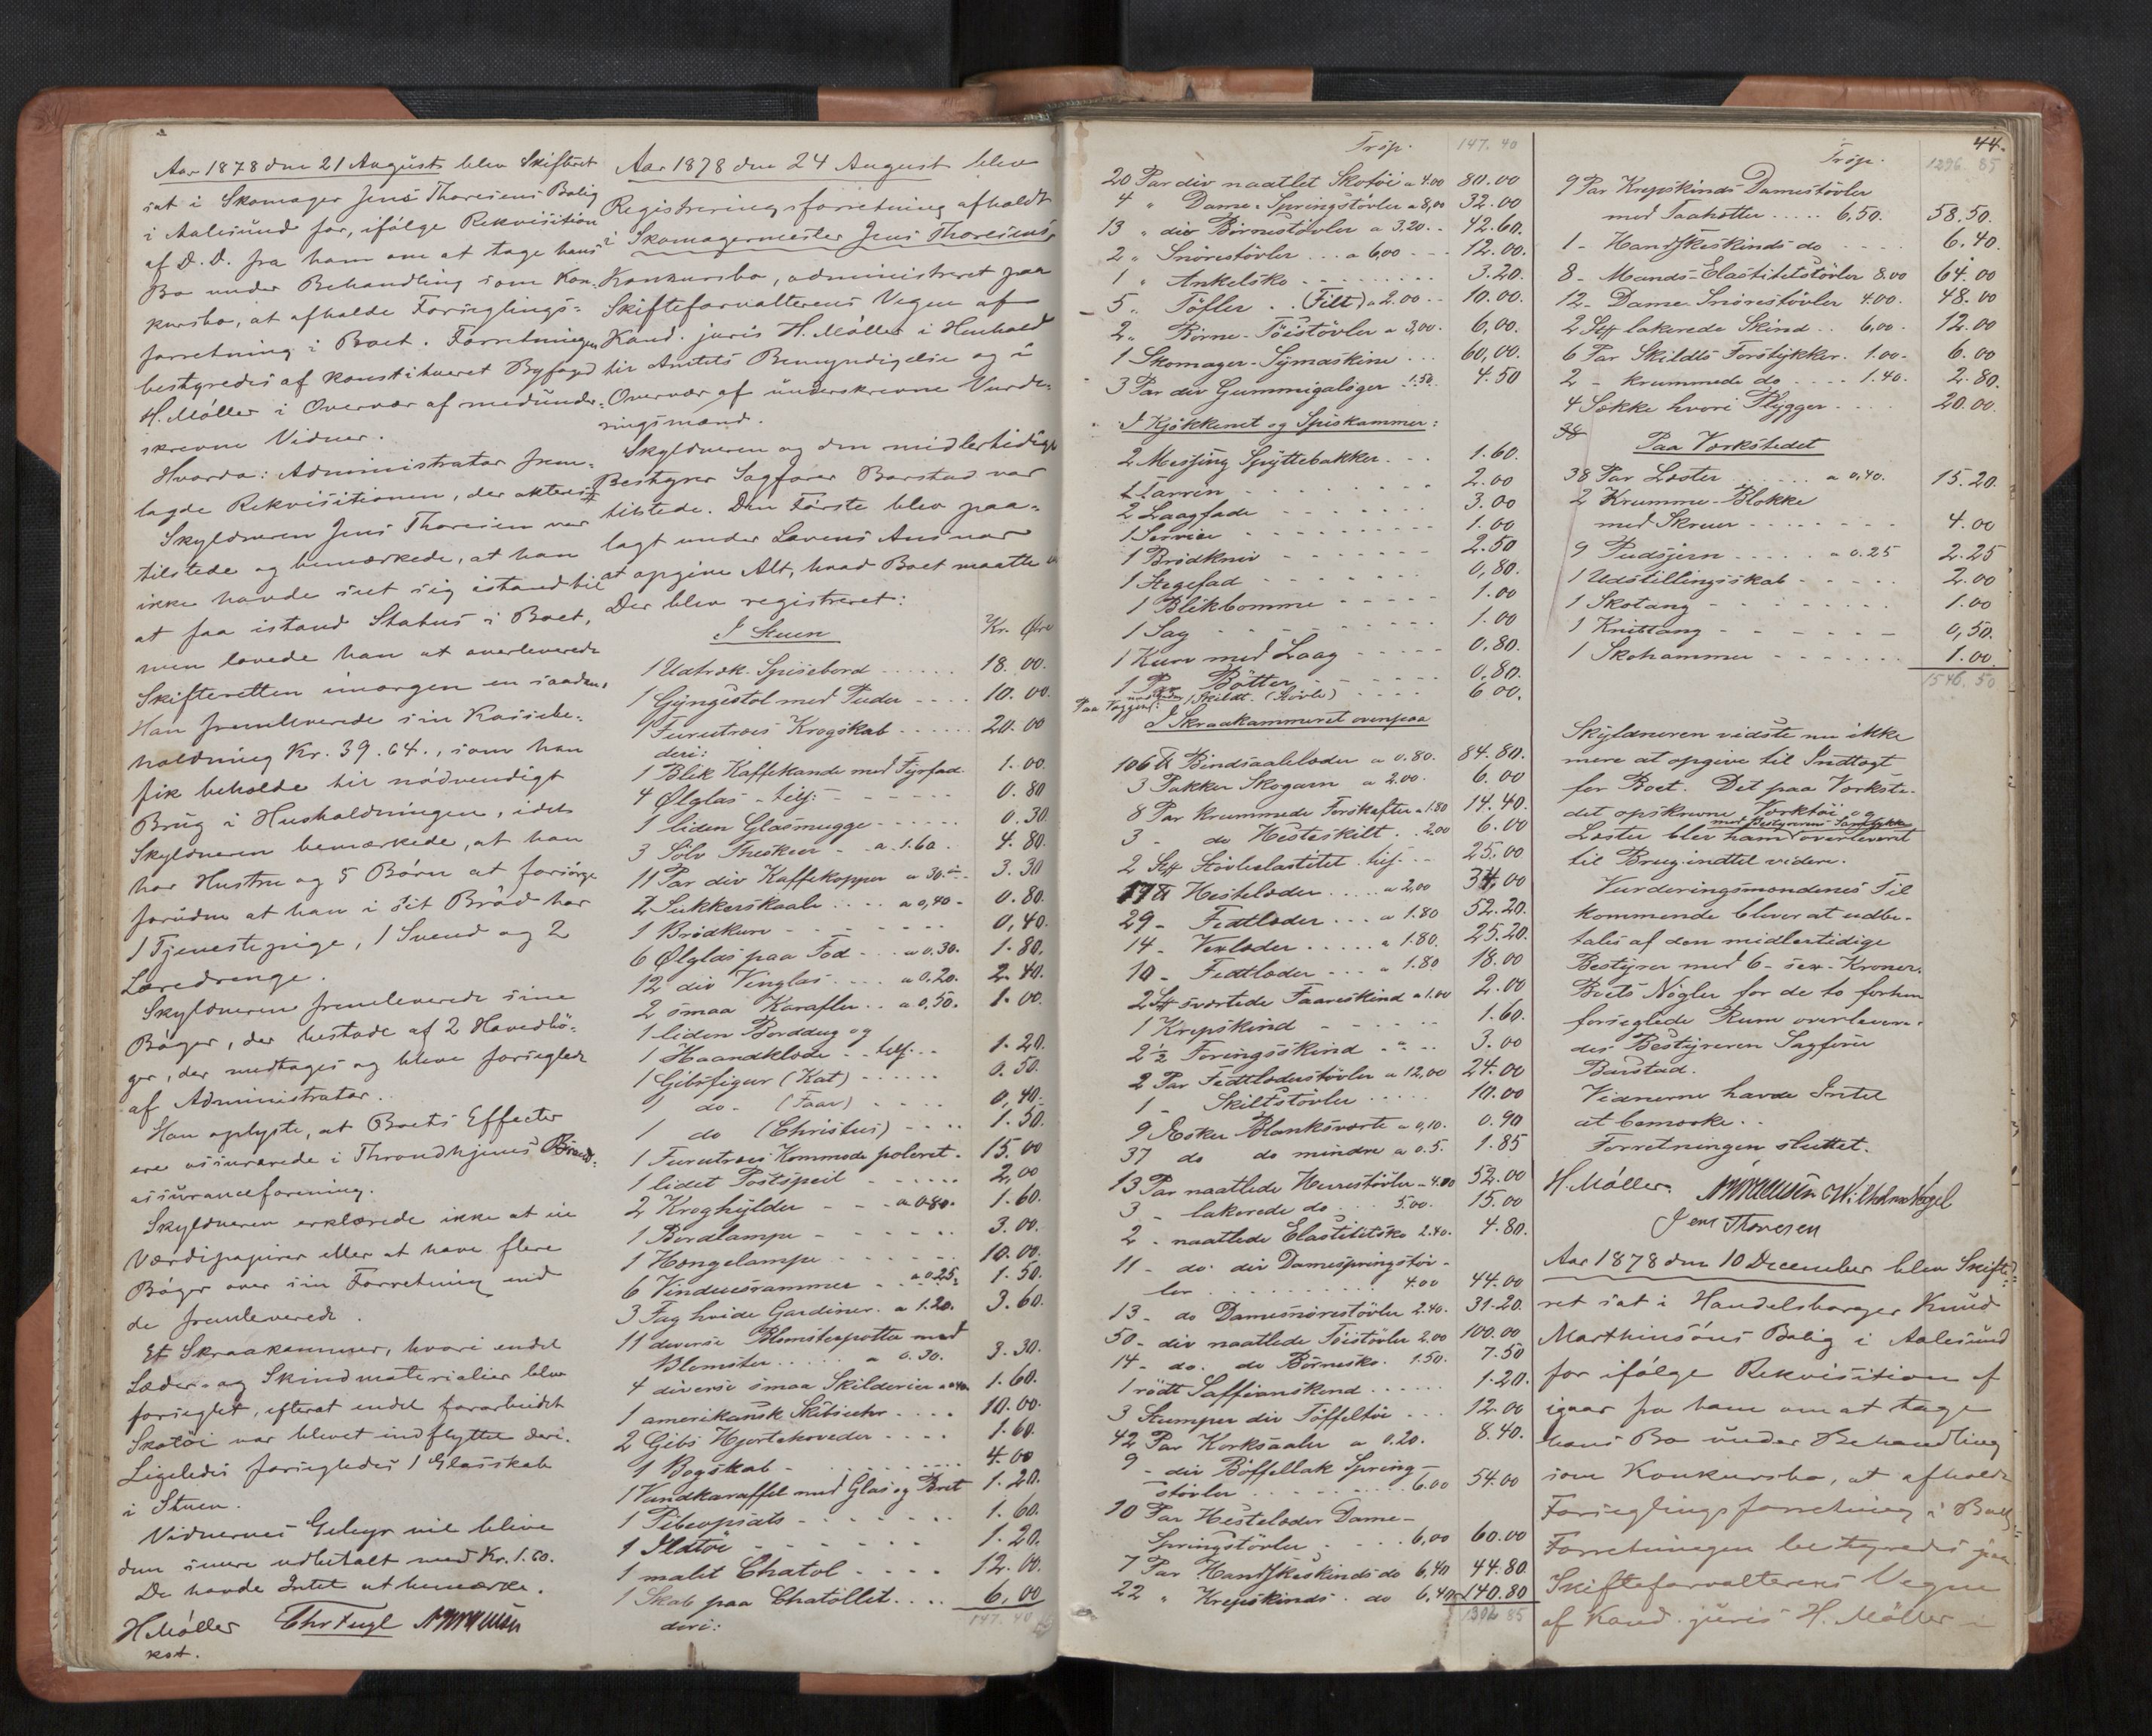 Aar 1878 den 21 August blev Skifteret
sat i Skomager Jens Thoresens Bolig
i Aalesund for, ifølge Rekvisition
af D. D. fra ham om at tage hans
Bo under Behandling som Kon-
kursbo, at afholde Forseglings-
forretning i Boet. Forretningen
bestyredes af konstitueret Byfoged
H. Møller i Overvær af medunder-
skrevne Vidner.
Hvorda: Administrator frem-
lagde Rekvisitionen, der akteres
Skyldneren Jens Thoresen var
tilstede og bemærkede, at han
ikke havde seet sig istand til
at faa istand Status i Boet,
men lovede han at overlevere
Skifteretten imorgen en saadan.
Han fremleverede sin Kassebe-
holdning Kr. 39.64., som han
fik beholde til nødvendigt
Brug i Husholdningen, idet
Skyldneren bemærkede, at han
har Hustru og 5 Børn at forsørge
foruden at han i sit Brød har
1 Tjenestepige, 1 Svend og 2
Læredrenge.
Skyldneren fremleverede sine
Bøger, der bestode af 2 Hovedbø-
ger, der modtoges og bleve forseglede
af Administrator.
Han oplyste, at Boets Effecter
ere assurerede i Throndhjems Brand-
assuranceforening.
Skyldneren erklærede ikke at eie
Værdipapirer eller at have flere
Bøger over sin Forretning end
de fremleverede.
Et Skraakammer, hvori endel
Læder- og Skindmaterialier blev
forseglet, efterat endel forarbeidet
Skotøi var blevet indflyttet deri.
Ligeledes forsegledes 1 Glasskab
i Stuen.
Vidnernes Gebyr vil blive
dem senere udbetalt med Kr. 1.60.
De havde Intet at bemærke.
H Møller Chr Fugl
kst.
Aar 1878 den 24 August blev
Registreringsforretning afholdt
i Skomagermester Jens Thoresens
Konkursbo, administreret paa
Skifteforvalterens Vegne af
Kand. juris H. Møller i Henhold
til Amtets Bemyndigelse og i
Overvær af underskrevne Vurde-
ringsmænd.
Skyldneren og den midlertidige
Bestyrer Sagfører Barstad var
tilstede. Den Første blev paa-
lagt under Lovens Ansvar
at opgive Alt, hvad Boet maatte
Der blev registreret:
I Stuen Kr. Øre
1 Udtræk. Spisebord 18.00.
1 Gyngestol med Puder 10.00.
1 Furutræs Krogskab 20.00
deri:
1 Blik Kaffekande med Fyrfad 1.00.
4 Ølglas - tils: 0.80
1 liden Glasmugge 0.30.
3 Sølv Theskeer - a 1.60. 4.80.
11 Par div Kaffekopper a 30. 3.30
2 Sukkerskaale a 0,40 - 0.80.
1 Brødkurv 0,40.
6 Ølglas paa Fod a 0.30. 1.80.
12 div Vinglas a 0,20. 2.40.
2 smaa Karafler a 0,50. 1.00.
1 liden Borddug og
1 Haandklæde - tils. 1.20.
1 Gibsfigur (Kat) 0.50.
1 do - (Faar) 0,40.
1 do (Christus) 1.50.
1 Furutræs Kommode poleret 15.00
1 lidet Postspeil 2,00
2 Kroghylder - a 0.80. 1.60.
1 Bordlampe 3.00.
1 Hængelampe 10.00.
6 Vinduesrammer a 0.25. 1.50.
3 Fag hvide Gardiner. a 1.20. 3.60.
11 diverse Blomsterpotter med
Blomster a 0.30. 3.30.
4 diverse smaa Skilderier a 0.40. 1.60.
1 amerikansk Stueuhr 10.00.
2 Gibs Hjortehoveder 1.60.
1 Bogskab 4.00
1 Vandkaraffel med Glas og Bret 1.20.
1 Pibeopsats 1.60.
1 Ildtøi 1.20.
1 malet Chatol 12.00.
1 Skab paa Chatollet 6.00
deri: 147.40
Trsp. 147.40
20 Par div naatlet Skotøi a 4.00 80.00
4 " Dame-Springstøvler a 8,00 32.00
13 " div Børnestøvler a 3.20 42.60.
2 " Snørestøvler a 6,00 12.00.
1 " Ankelsko 3.20.
5 " Tøfler (Filt) a 2.00 10.00.
2 " Børne-Tøistøvler a 3,00. 6,00.
1 Skomager-Symaskine 60,00.
3 Par div Gummigaloger 1.50. 4.50
I Kjøkkenet og Spiskammer:
2 Messing Spyttebakker 1.60.
1 Tarrin 2.00
2 Laagfade 3.00
1 Servier 1.00
1 Brødkniv 2.50
1 Stegefad 0,80.
1 Blikbomme 1.00
1 Sag 1.00
1 Kurv med Laag 0,80.
1 Par Bøtter 0,80.
Paa Væggen: 1 Skildt (Støvle) 6 00.
I Skraakammeret ovenpaa
106 ℔ Bindsaalelæder a 0.80. 84.80.
3 Pakker Skogarn a 2.00. 6.00
8 Par krummede Forskafter a 1.80 14.40.
3 - do Hesteskilt 2.00 6.00
2 Stk Støvleelastitet tils. 25.00
17 ℔ Hestelæder a 2,00 34,00
29 - Fedtlæder a 1.80 52.20.
14 - Voxlæder a 1.80. 25.20.
10 - Fedtlæder a 1.80 18.00
2 Stk sværtede Faareskind a 1.00 2.00
1 Krepskind 1.60.
2½ Foringsskind 3.00
2 Par Fedtlæderstøvler a 12,00 24.00
1 - Skiltstøvler 10.00
9 Æsker Blanksværte a 0,10. 0.90
37 do do mindre a 0.5. 1.85
13 Par naatlede Herrestøvler - 4.00 52.00
3 - lakerede do 5.00. 15.00
2 - naatlede Elastitetsko 2.40. 4.80.
11 - do. div Damespringstøv-
ler 4.00 44.00
13 - do Damesnørestøvler 2.40. 31.20.
50 - div naatlede Tøistøvler 2.00 100.00
14 - do. do Børnesko. 1.50. 7.50
1 rødt Saffianskind 1.20.
3 Stumper div Tøffeltøi 12.00
42 Par Korksaaler a 0.20. 8.40.
9 - div Bøffellak Spring-
støvler 6.00 54.00
10 Par Hestelæder Dame-
Springstøvler 6,00 60.00
7 Par Handskeskinds do 6,40 44.80.
22 " Krepskinds do 6,40 140.80
85
44.
Trsp. 1296 85
9 Par Krepskinds Damestøvler
med Taahætter 6,50. 58.50.
1 - Handskeskinds do 6.40.
8 - Mands-Elastitetstøvler 8.00 64.00
12 - Dame Snørestøvler 4.00. 48.00
2 Stk lakerede Skind 6,00 12.00
6 Par Skildts Forstykker. 1.00 6.00
2 - krummede do 1.40. 2.80.
4 Sække hvori Plygger 20.00.
38
Paa Værkstedet
38 Par Læster a 0,40. 15.20.
2 Krumme-Blokke
med Skruer 4.00
9 Pudsjern a 0.25 2.25
1 Udstillingsskab 2.00
1 Skotang 1.00
1 Knibtang 0,50.
1 Skohammer 1.00.
1546.50
Skyldneren vidste nu ikke
mere at opgive til Indtægt
for Boet. Det paa Værkste-
det opskrevne Værktøi og
med Bestyrerens Samtykke
Læster blev ham overleveret
til Brug indtil videre.
Vurderingsmændenes Til
kommende bliver at udbe-
tales af den midlertidige
Bestyrer med 6 - sex - Kroner.
Boets Nøgler for de to forhen
forseglede Rum overlevere-
des Bestyreren Sagfører
Barstad.
Vidnerne havde Intet
at bemærke.
Forretningen sluttet.
H. Møller. Wilhelm Nagel
Jens Thoresen
Aar 1878 den 10 December blev Skifte-
ret sat i Handelsborger Knud
Marthinsøns Bolig i Aalesund
for ifølge Rekvisition af
igaar fra ham om at tage
hans Bo under Behandling
som Konkursbo, at afholde
Forseglingsforretning i Boet
Forretningen bestyredes paa
Skifteforvalterens Vegne
af Kand. juris H. Møller i